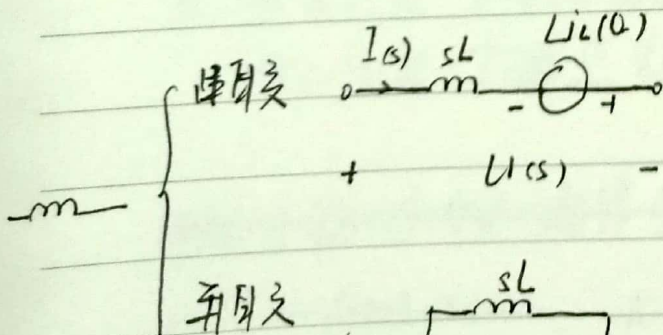 串联 I(s) sL Li_L(0_-)
- +
+ U(s) -
并联 sL